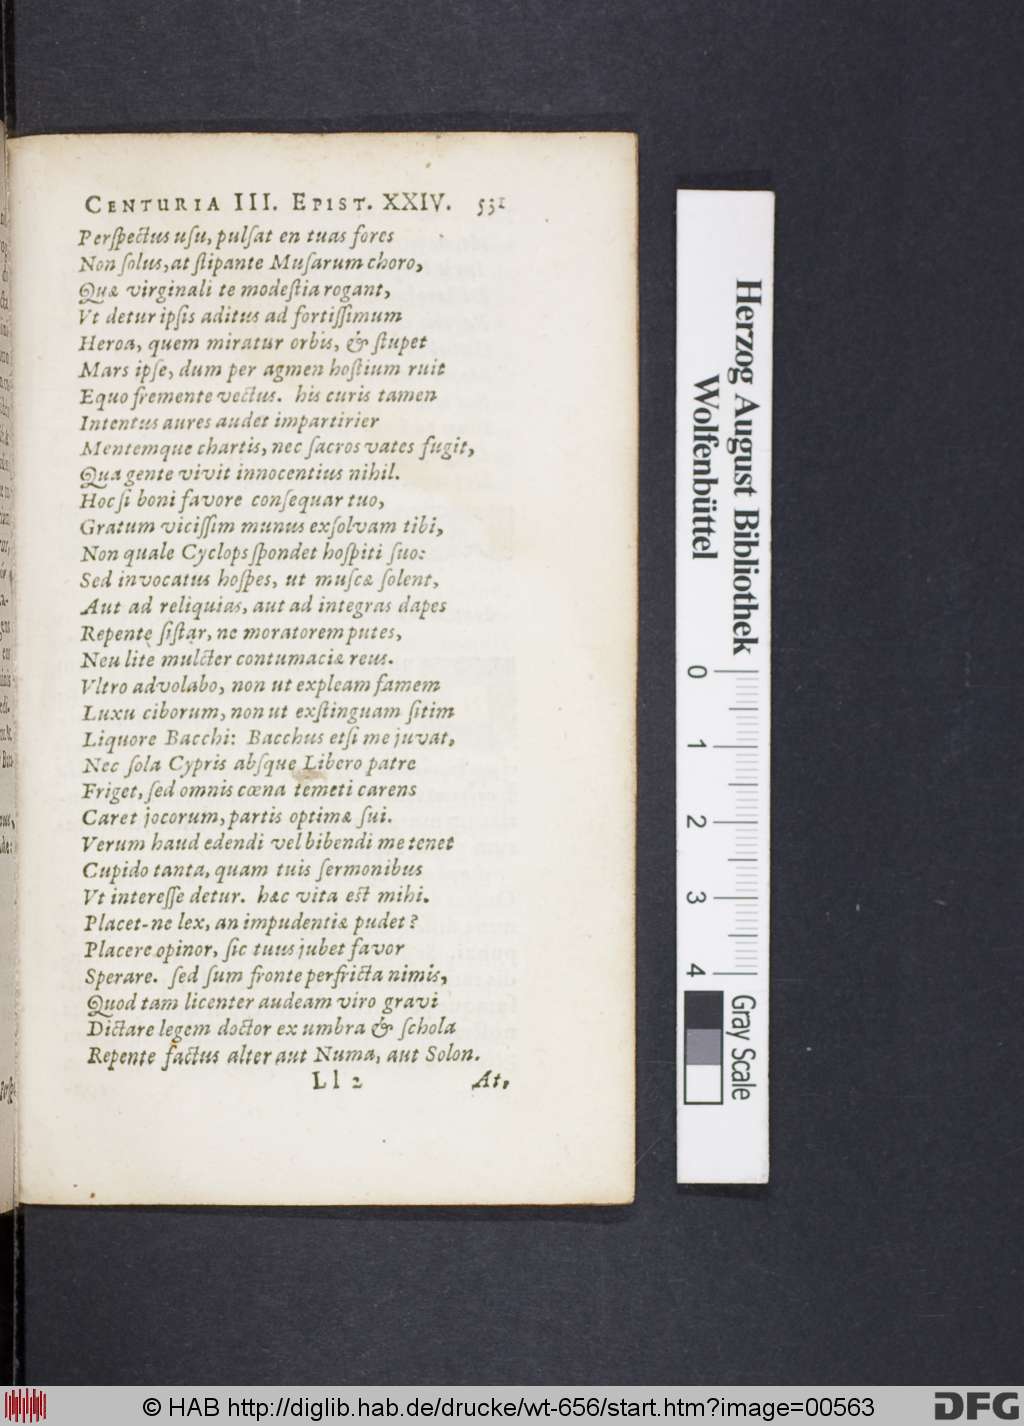 CENTURIA III. EPIST. XXIV. 531
Perſpectus uſu, pulſat en tuas fores
Non ſolus, at ſtipante Muſarum choro,
Quæ virginali te modeſtia rogant,
Vt detur ipſis aditus ad fortiſſimum
Heroa, quem miratur orbis, & ſtupet
Mars ipſe, dum per agmen hoſtium ruit
Equo fremente vectus. his curis tamen
Intentus aures audet impartirier
Mentemque chartis, nec ſacros vates fugit,
Qua gente vivit innocentius nihil.
Hoc ſi boni favore conſequar tuo,
Gratum viciſſim munus exſolvam tibi,
Non quale Cyclops ſpondet hoſpiti ſuo:
Sed invocatus hoſpes, ut muſcæ ſolent,
Aut ad reliquias, aut ad integras dapes
Repente ſiſtar, ne moratorem putes,
Neu lite mulcter contumaciæ reus.
Vltro advolabo, non ut expleam famem
Luxu ciborum, non ut exſtinguam ſitim
Liquore Bacchi: Bacchus etſi me juvat,
Nec ſola Cypris abſque Libero patre
Friget, ſed omnis cœna temeti carens
Caret jocorum, partis optimæ ſui.
Verum haud edendi vel bibendi me tenet
Cupido tanta, quam tuis ſermonibus
Vt intereſſe detur. hæc vita eſt mihi.
Placet-ne lex, an impudentiæ pudet?
Placere opinor, ſic tuus jubet favor
Sperare. ſed ſum fronte perfricta nimis,
Quod tam licenter audeam viro gravi
Dictare legem doctor ex umbra & ſchola
Repente factus alter aut Numa, aut Solon.
Ll 2 At,
Herzog August Bibliothek
Wolfenbüttel
0 1 2 3 4
Gray Scale
© HAB http://diglib.hab.de/drucke/wt-656/start.htm?image=00563
DFG